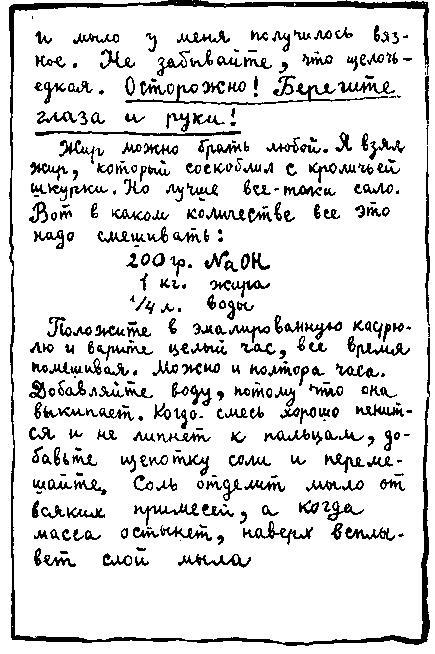 и мыло у меня получилось вяз-
кое. Не забывайте, что щелочь-
едкая. Осторожно! Берегите
глаза и руки!
Жир можно брать любой. Я взял
жир, который соскоблил с кроличьей
шкурки. Но лучше все-таки сало.
Вот в каком количестве все это
надо смешивать:
200 гр. NaOH
1 кг. жира
1/4 л. воды
Положите в эмалированную кастрю-
лю и варите целый час, все время
помешивая. Можно и полтора часа.
Добавляйте воду, потому что она
выкипает. Когда смесь хорошо пенит-
ся и не липнет к пальцам, до-
бавьте щепотку соли и переме-
шайте. Соль отделит мыло от
всяких примесей, а когда
масса остынет, наверх всплы-
вет слой мыла